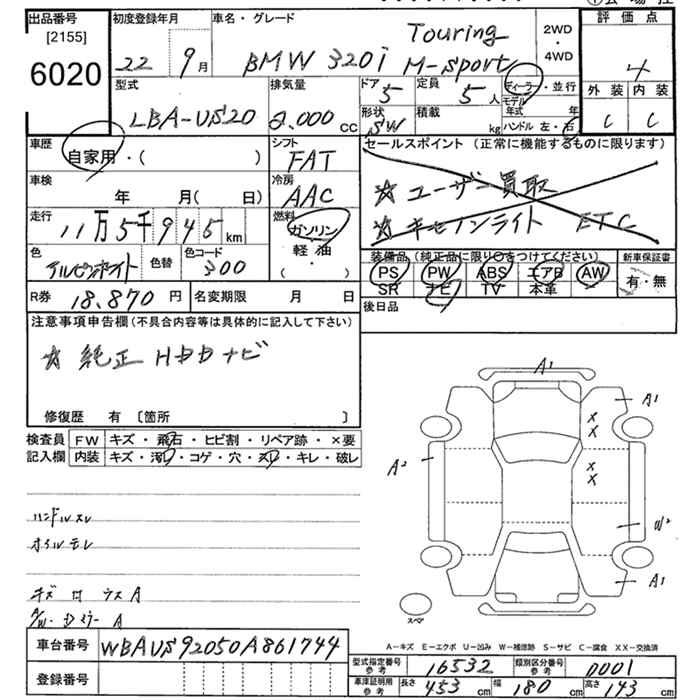 出品番号
[2155]
6020
初度登録年月
22 9月
車名・グレード
BMW 320i Touring M-sport
2WD ・ 4WD
評価点
4
外装 内装
C C
型式
LBA-US20
排気量
2.000 cc
ドア 5
形状 SW
定員 5 人
積載 kg
ディーラー・並行
モデル年式 年
ハンドル 左・右
車歴
自家用・( )
シフト
FAT
セールスポイント(正常に機能するものに限ります)
☆ ユーザー買取
☆ キセノンライト ETC
車検
年 月( 日)
冷房
AAC
走行
11万5千945 km
燃料
ガソリン
軽油
( ・ )
色
アルピンホワイト
色替
色コード
300
装備品(純正品に限り○をつけてください)
PS PW ABS エアB AW
SR ナビ TV 本革
新車保証書
有・無
R券 18,870 円
名変期限 月 日
後日品
注意事項申告欄(不具合内容等は具体的に記入して下さい)
☆ 純正 HDDナビ
修復歴 有 〔箇所 〕
検査員記入欄
FW キズ・飛石・ヒビ割・リペア跡・×要
内装 キズ・汚れ・コゲ・穴・スレ・キレ・破レ
ハンドルスレ
オイルモレ
A1
A1
X
X
X
X
A2
A1
スペア
A-キズ E-エクボ U-凹み W-補修跡 S-サビ C-腐食 XX-交換済
車台番号 WBAUS92050A861744
登録番号
型式指定番号 参考 16532
類別区分番号 参考 0001
車庫証明用 参考 長さ 453 cm 幅 180 cm 高さ 143 cm